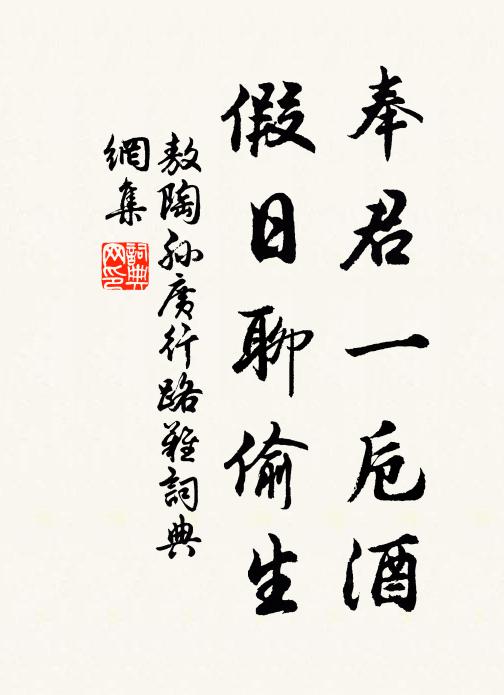 奉君一卮酒
假日聊偷生
敖陶孙廣行路難詞典
網集
詞典
网印